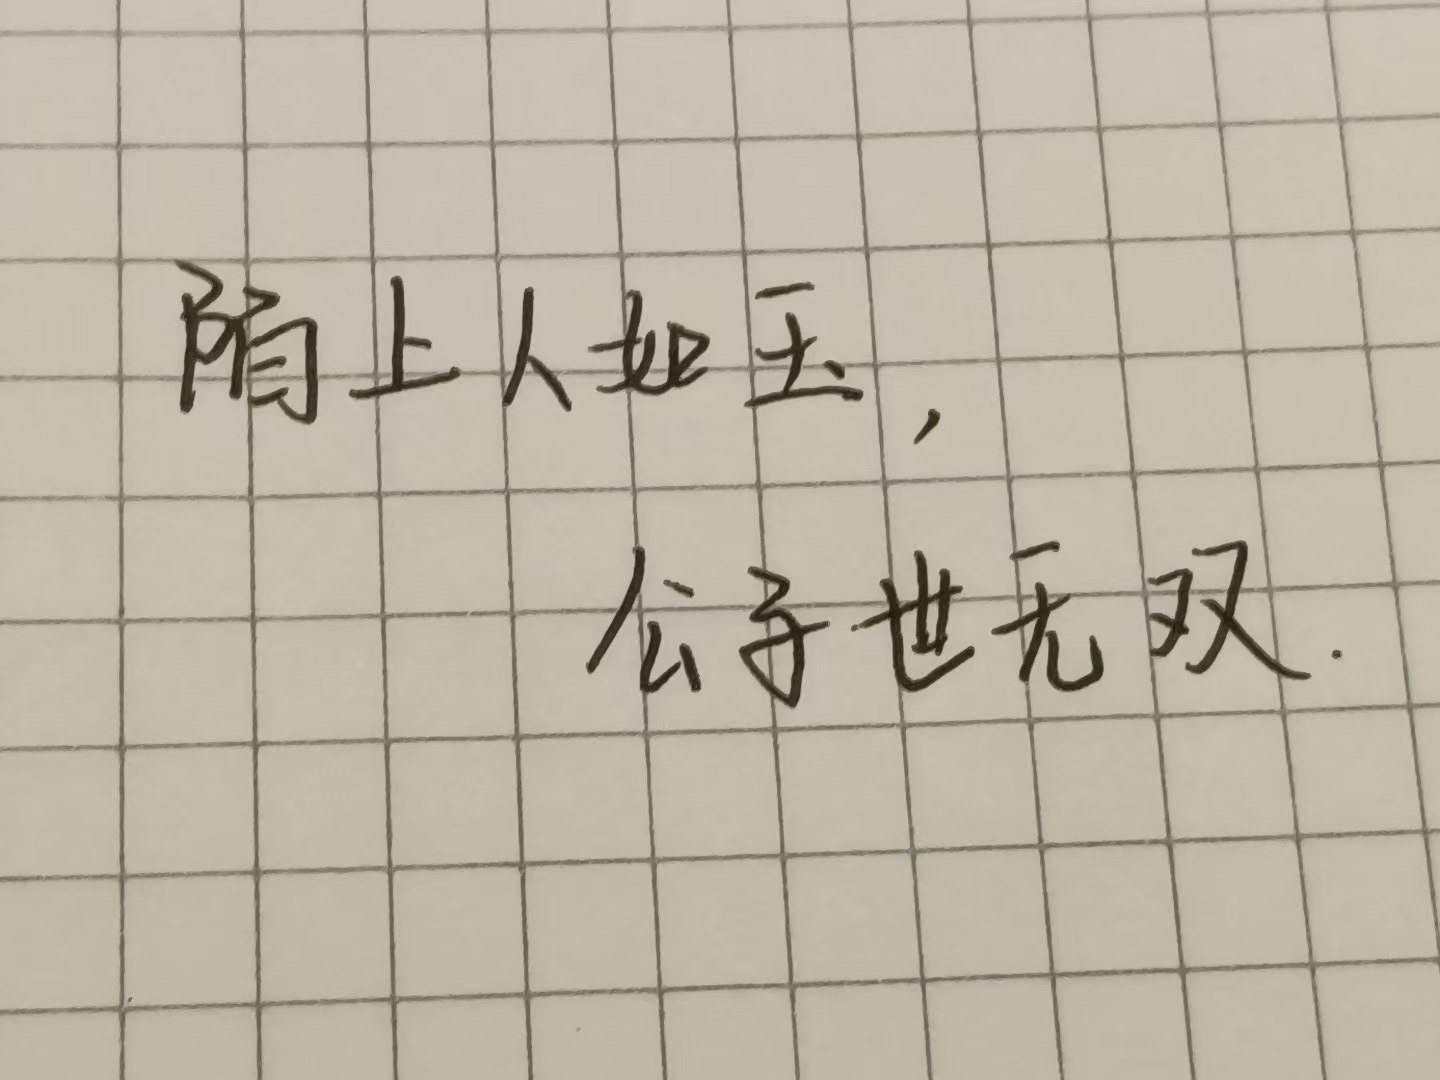 陌上人如玉,
公子世无双.